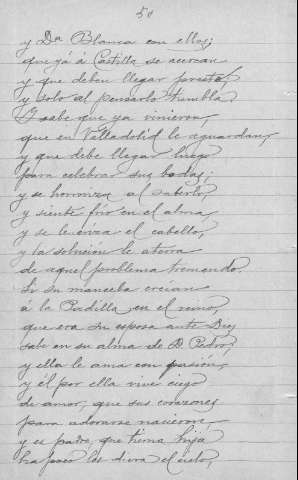 50
y Dª Blanca con ellos;
que yá á Castilla se acercan
y que deben llegar presto,
y solo al pensarlo tiembla,
Y sabe que ya vinieron,
que en Valladolid le aguardan,
y que debe llegar luego
para celebrar sus bodas;
y se horroriza al saberlo,
y siente frio en el alma,
y se le eriza el cabello,
y la solución le aterra
de aquel problema tremendo.
Si su manceba creian
á la Padilla en el reino,
que era su esposa ante Dios
sabe en su alma de D. Pedro;
y ella le ama con pasión,
y él por ella vive ciego
de amor, que sus corazones
para adorarse nacieron,
y es padre, que tierna hija
ha poco les diera el cielo,